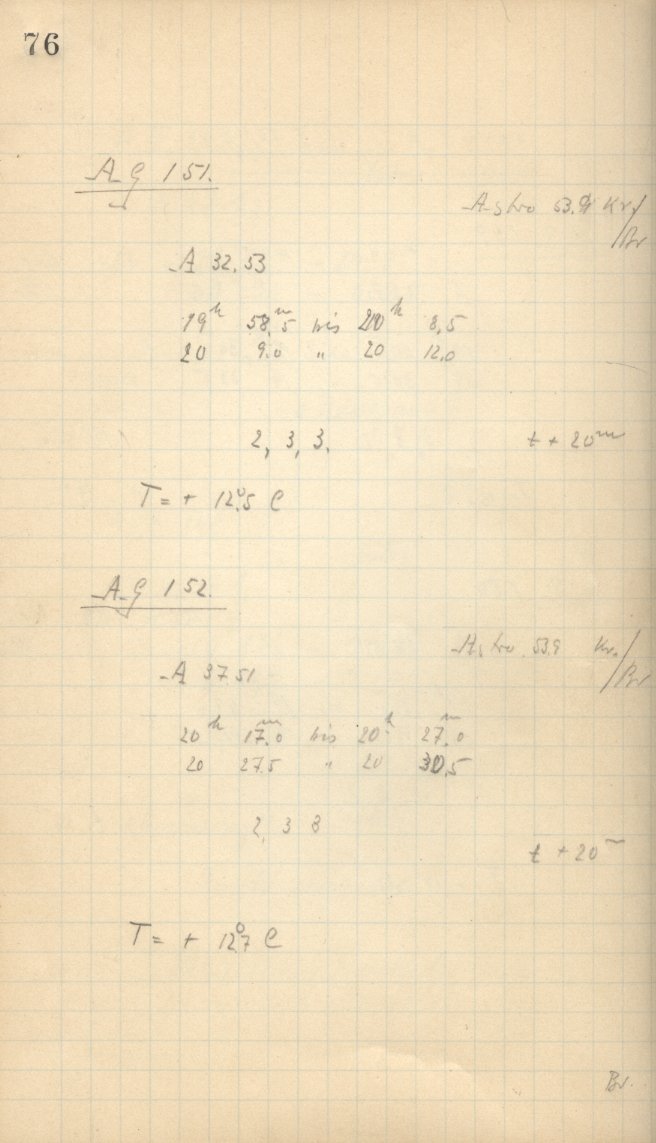 76
AG 151.
Astro 53.9 Kr/
Br
A 32.53
19h 58m,5 bis 20h 8,5
20 9.0 „ 20 12.0
2, 3, 3.
t + 20m
T = + 12°,5 C
AG 152.
Astro 53.9 Kr./
Br
A 37 51
20h 17m,0 bis 20h 27m,0
20 27.5 „ 20 30,5
2, 3 3
t + 20m
T = + 12°,7 C
Br.